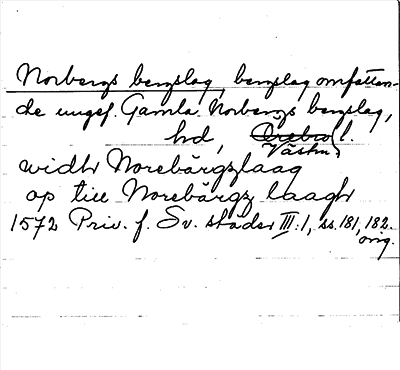 Norbergs bergslag, bergslag omfattan-
de ungef. Gamla Norbergs bergslag,
hd, Örebro l.
Västm.
widh Norebärgzlaag
op till Norebärgz laagh
1572 Priv. f. Sv. städer III:1, ss. 181, 182.
orig.